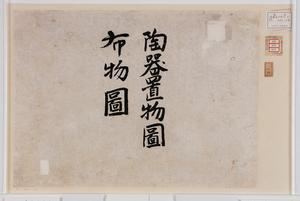 陶器置物圖
布物圖